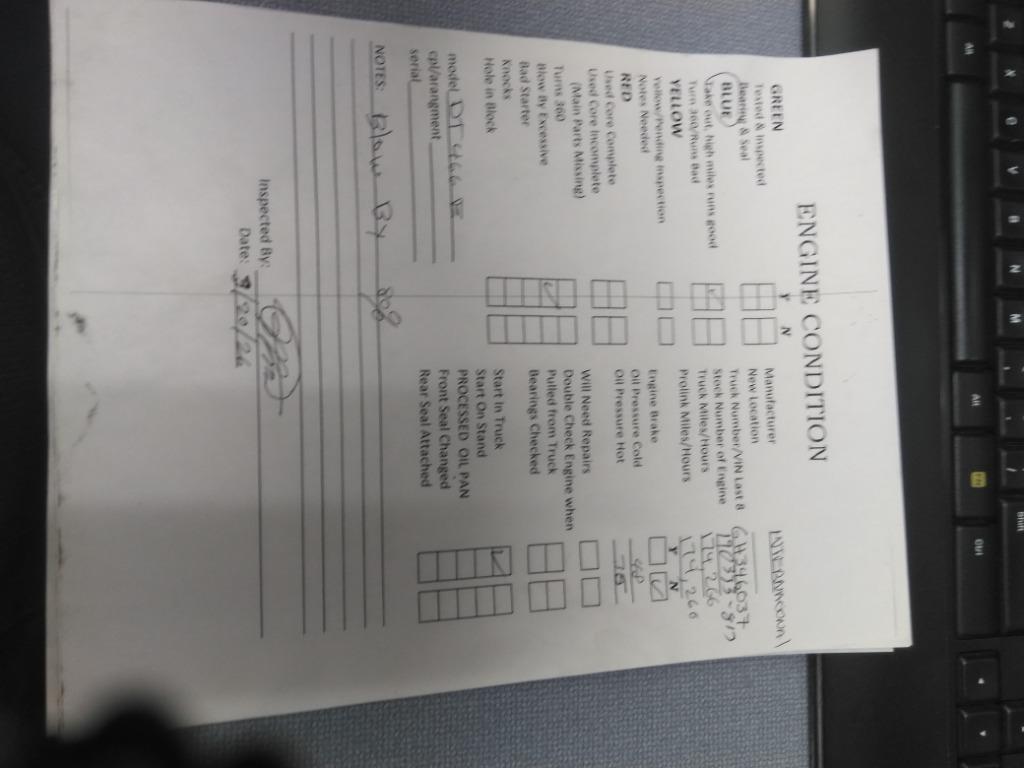 ENGINE CONDITION
GREEN
Tested & Inspected
Bearing & Seal
BLUE
Take out, high miles runs good
Turn 360/Runs Bad
YELLOW
Yellow/Pending Inspection
Notes Needed
RED
Used Core Complete
Used Core Incomplete
(Main Parts Missing)
Turns 360
Blow By Excessive
Bad Starter
Knocks
Hole in Block
model DT466E
cpl/arrangment
serial
Y N
Manufacturer INTERNATIONAL
New Location
Truck Number/VIN Last 8 6H346037
Stock Number of Engine
Truck Miles/Hours 174,266
Prolink Miles/Hours 174,266
Y N
Engine Brake
Oil Pressure Cold
Oil Pressure Hot
Will Need Repairs
Double Check Engine when
Pulled from Truck
Bearings Checked
Start In Truck
Start On Stand
PROCESSED OIL PAN
Front Seal Changed
Rear Seal Attached
NOTES: Blow By
Inspected By:
Date: 3/20/26